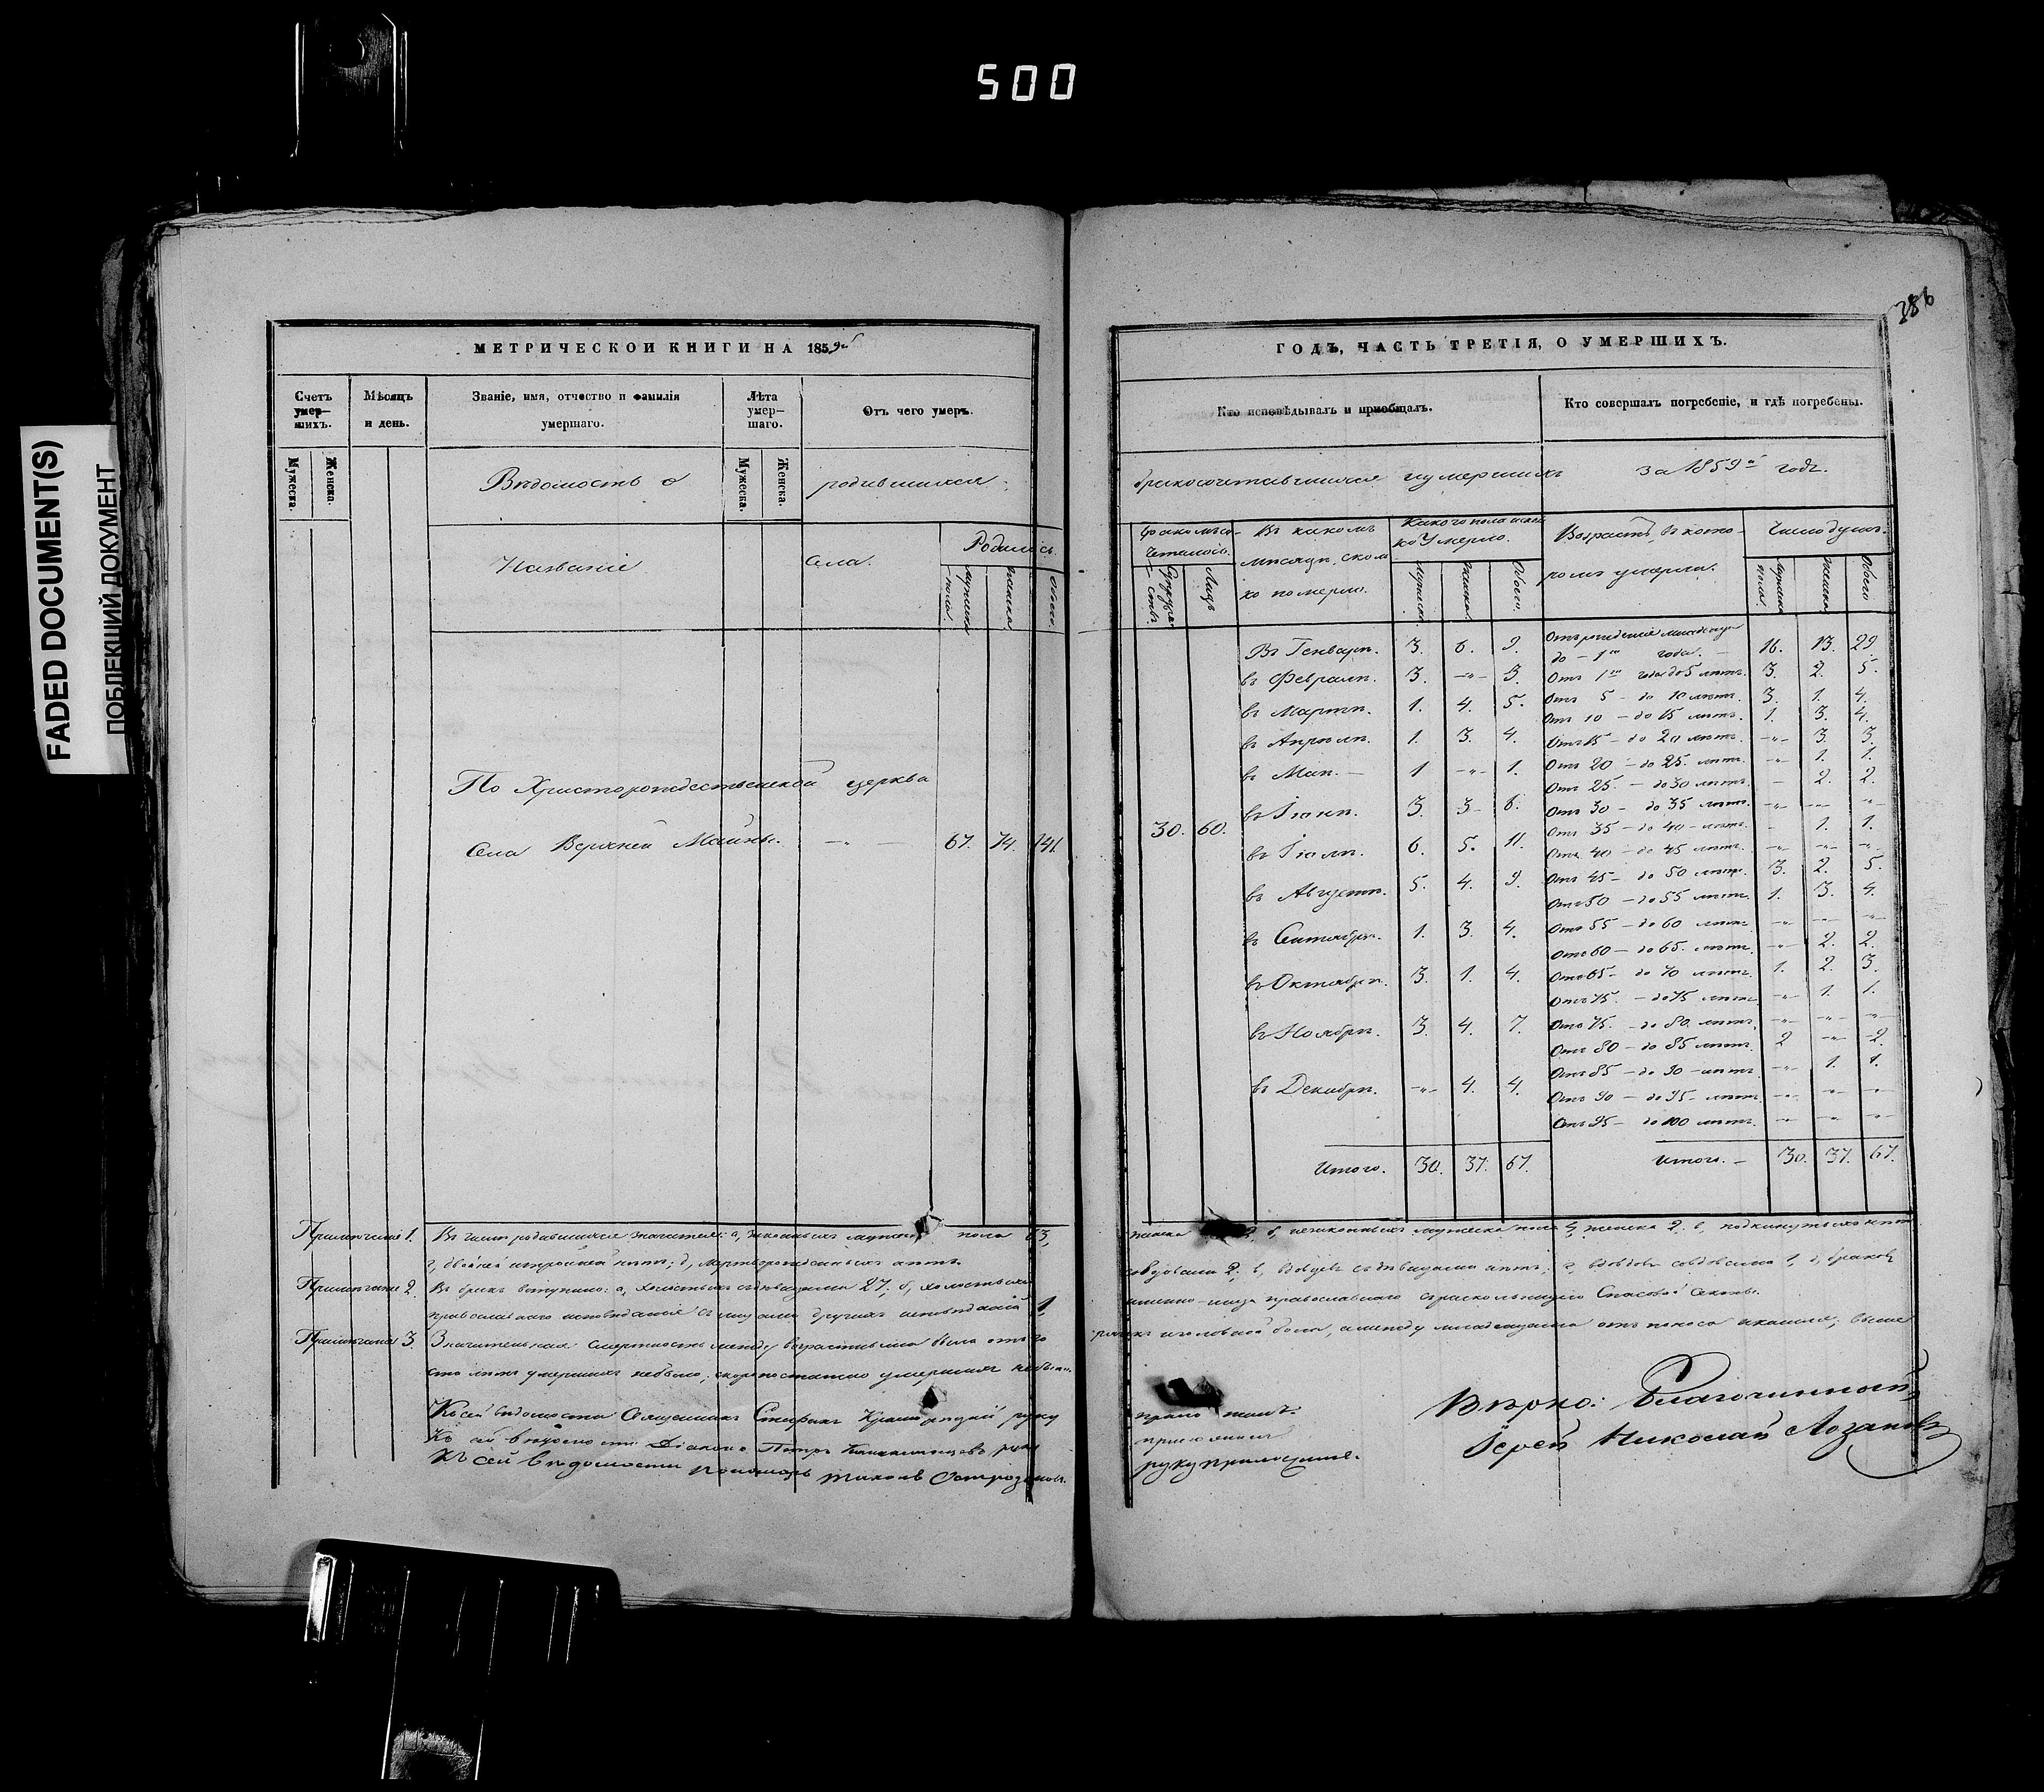 500
FADED DOCUMENT(S)
ПОБЛЕКШИЙ ДОКУМЕНТ
386
МЕТРИЧЕСКОЙ КНИГИ НА 1859й
Счетъ умер-шихъ.
Мѣсяцъ и день.
Званіе, имя, отчество и фамилія умершаго.
Лѣта умер-шаго.
Отъ чего умеръ.
Мужеска. Женска.
Мужеска. Женска.
Вѣдомость о родившихся,
Названіе села.
Родилось
мужеска пола. женска. обоего.
По Христорождественской церкве
Села Верхней Майны. — „ — 67. 74. 141.
ГОДЪ, ЧАСТЬ ТРЕТІЯ, О УМЕРШИХЪ.
Кто исповѣдывалъ и пріобщалъ.
Кто совершалъ погребеніе, и гдѣ погребены.
бракосочетавшихся и умершихъ за 1859й годъ.
Супружествъ. Лицъ
Въ какомъ мѣсяцѣ, сколько померло.
Какого пола сколько умерло.
Мужеска. женска. Обоего.
Возрастъ, въ которомъ умерли.
Число душъ.
мужеска пола. женска Обоего
30. 60.
Въ Генварѣ. 3. 6. 9.
въ Февралѣ. 3. —„— 3.
въ Мартѣ. 1. 4. 5.
въ Апрѣлѣ. 1. 3. 4.
въ Маѣ. — 1 —„— 1.
въ Іюнѣ. 3. 3 6.
въ Іюлѣ. 6. 5. 11.
въ Августѣ. 5. 4. 9.
въ Сентябрѣ. 1. 3. 4.
въ Октябрѣ. 3. 1. 4.
въ Ноябрѣ. 3. 4. 7.
въ Декабрѣ. —„— 4. 4.
Итого. 30. 37. 67.
Отъ рожденія младенца до — 1го года. — 16. 13. 29.
Отъ 1го года до 5 лѣтъ. 3. 2. 5.
Отъ 5 — до 10 лѣтъ. 3. 1. 4.
Отъ 10 — до 15 лѣтъ. 1. 3. 4.
Отъ 15 — до 20 лѣтъ. —„— 3. 3.
Отъ 20 — до 25. лѣтъ. —„— 1. 1.
Отъ 25. — до 30 лѣтъ. — 2. 2.
Отъ 30 — до 35 лѣтъ. —„— —„— —„—
Отъ 35 — до 40 — лѣтъ. - 1. 1.
Отъ 40 — до 45 лѣтъ. —„— —„— —„—
Отъ 45 — до 50 лѣтъ. 3. 2. 5.
Отъ 50 — до 55 лѣтъ. 1. 3. 4.
Отъ 55 — до 60 лѣтъ. —„— —„— —„—
Отъ 60 — до 65. лѣтъ. —„— 2. 2.
Отъ 65 — до 70 лѣтъ. 1. 2. 3.
Отъ 75. — до 75 лѣтъ —„— 1. 1.
Отъ 75. — до 80. лѣтъ. —„— —„— —„—
Отъ 80 — до 85 лѣтъ. 2 —„— 2.
Отъ 85 — до 90 — лѣтъ. —„— 1. 1.
Отъ 90 — до 95 — лѣтъ. —„— —„— —„—
Отъ 95 — до 100 лѣтъ. —„— —„— —„—
Итого. — 30. 37. 67.
Примѣчаніе 1. Въ числѣ родившихся значится: а, законныхъ мужеска пола 63, женска б, незаконныхъ мужеска пола 4, женска 2. в, подкинутыхъ нѣтъ
г, двойней и тройней нѣтъ; д, мертворожденныхъ нѣтъ.
Примѣчаніе 2. Въ бракъ вступило: а, холостыхъ съ дѣвицами 27; б, холостыхъ со вдовами 2; в, вдовцевъ съ дѣвицами нѣтъ; г, вдовцевъ со вдовами 1, д, браковъ
православнаго исповѣданія съ лицами другихъ исповѣданій 1, именно — лица православнаго съ раскольницею Спасовой Секты.
Примѣчаніе 3. Значительная смертность между возрастными была отъ горячекъ и головной боли, а между младенцами отъ поноса и кашля; выше
ста лѣтъ умершихъ небыло; скоропостижно умершихъ небыло.
Къ сей вѣдомости Священникъ Стефанъ руку приложилъ.
Къ сей вѣдомости Діаконъ Петръ руку приложилъ
Къ сей вѣдомости пономарь Тихонъ Остроумовъ. руку приложилъ.
Вѣрно: Благочинный,
Іерей Николай Лозановъ